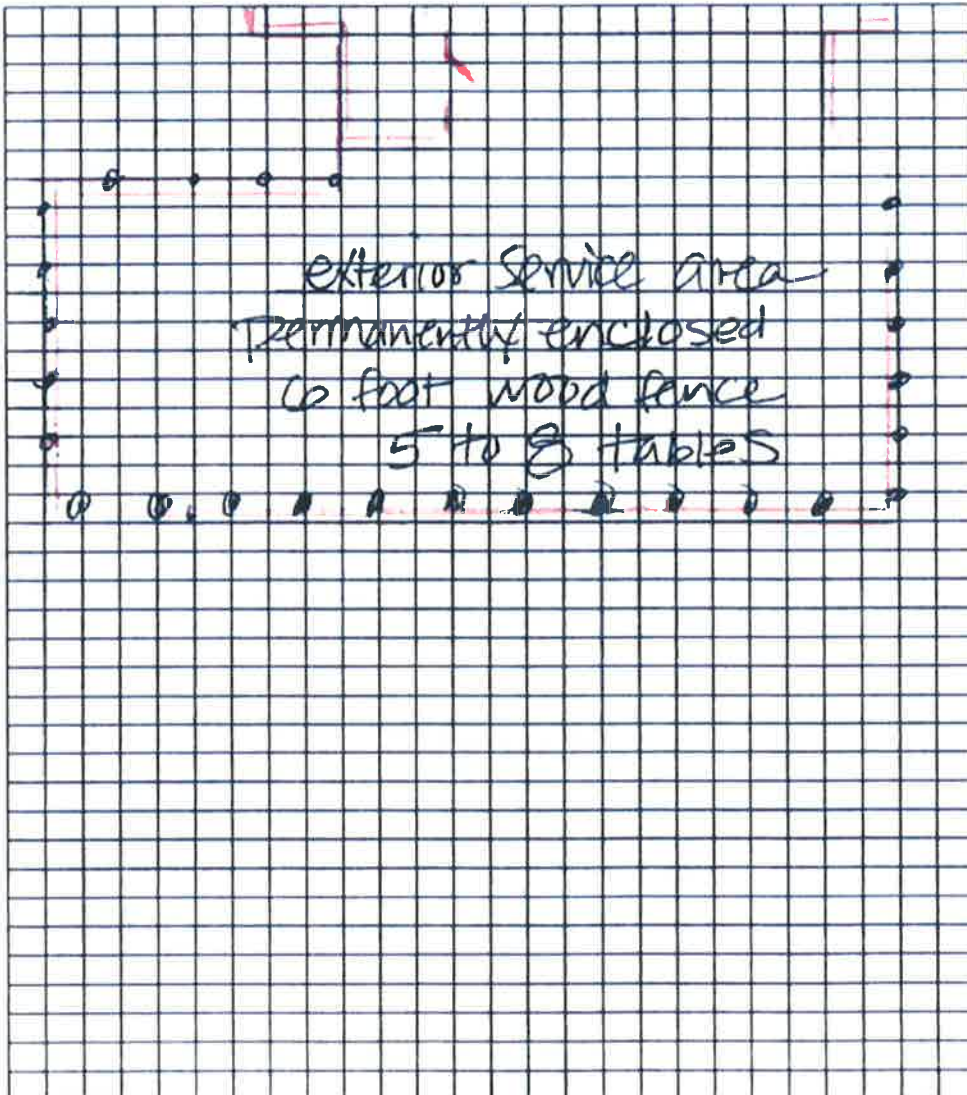 exterior service area
permanently enclosed
6 foot wood fence
5 to 8 tables